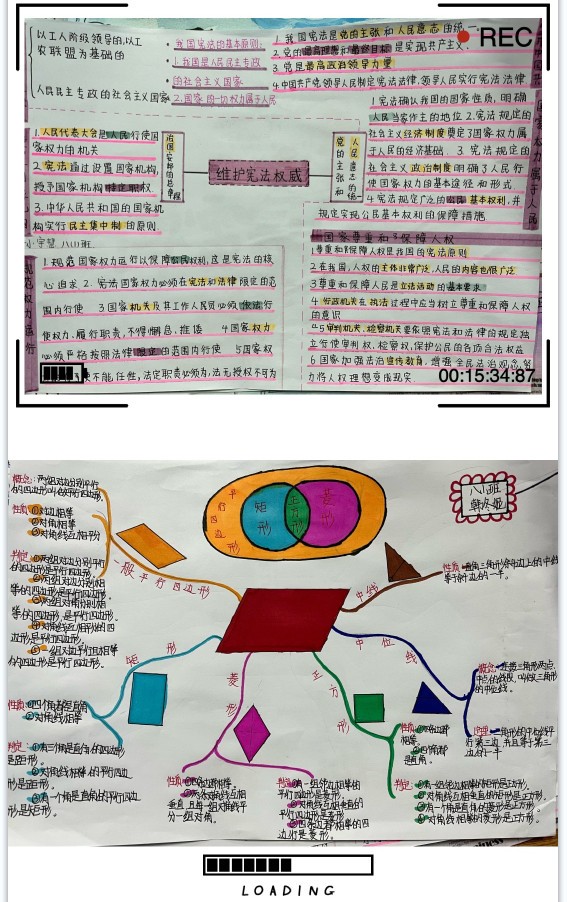 REC
以工人阶级领导的,以工
农联盟为基础的
人民民主专政的社会主义国家
我国宪法的基本原则:
1.我国是人民民主专政
的社会主义国家
2.国家的一切权力属于人民
1 我国宪法是党的主张和人民意志的统一
2 党的最高理想和最终目标是实现共产主义.
3 党是最高政治领导力量
4.中国共产党领导人民制定宪法法律,领导人民实行宪法法律.
1.人民代表大会是人民行使国
家权力的机关
2.宪法通过设置国家机构,
授予国家机构特定职权
3.中华人民共和国的国家机
构实行民主集中制的原则
治国安邦的总章程
维护宪法权威
党的主张和
人民意志的统一
1 宪法确认我国的国家性质,明确
人民当家作主的地位 2.宪法规定的
社会主义经济制度奠定了国家权力属
于人民的经济基础. 3.宪法规定的
社会主义政治制度明确了人民行
使国家权力的基本途径和形式
4 宪法规定广泛的公民基本权利,并
规定实现公民基本权利的保障措施
国家尊重和保障人权
1尊重和保障人权是我国的宪法原则
2 在我国,人权的主体非常广泛,人民的内容也很广泛
3 尊重和保障人民是立法活动的基本要求
4 行政机关在执法过程中应当树立尊重和保障人权
的意识
5 审判机关,检察机关要依照宪法和法律的规定独
立行使审判权,检察权,保护公民的各项合法权益
6 国家加强法治宣传教育,增强全民法治观念,努
力将人权理想变成现实
八(1)班
规范权力运行
1 规范国家权力运行以保障公民权利,这是宪法的核
心追求 2.宪法国家权力必须在宪法和法律限定的范
围内行使 3国家机关及其工作人员必须依法行
使权力,履行职责,不得懈怠、推诿 4国家权力
必须严格按照法律规定的范围内行使 5国家权
不能任性,法定职责必须为,法无授权不可为
00:15:34:87
概念:两组对边分别平行
的四边形叫做平行四边形.
性质:①对边相等
②对角相等
③对角线互相平分
判定:①两组对边分别平行
的四边形是平行四边形.
②两组对边分别相
等的四边形是平行四边形.
③两组对角分别相
等的四边形,是平行四边形.
④对角线互相平分的四
边形是平行四边形.
⑤一组对边平行且相等
的四边形是平行四边形
平行四边形
矩形
正方形
菱形
八(1)班
韩冬姬
一般平行四边形
中线
性质:直角三角形斜边上的中线
等于斜边的一半.
中位线
概念:连接三角形两点
中点的线段,叫做三角形
的中位线.
定理:三角形的中位线平
行第三边,并且等于第三
边的一半
矩形
性质:①四个角是直角
②对角线相等
判定:①有三个角是直角的四边形
是矩形.
②对角线相等的平行四边
形是矩形.
③有一个角是直角的平行四边
形是矩形.
菱形
性质:①四边都相等.
②两条对角线互相
垂直,且每一组对角线平
分一组对角.
判定:①有一组邻边相等的
平行四边形是菱形.
②对角线互相垂直的
平行四边形是菱形
③四条边都相等的四
边形是菱形.
正方形
性质:①四条边都
相等.
②四个角都
是直角.
判定:①有一组邻边相等的矩形是正方形.
②对角线互相垂直的矩形是正方形.
③有一个角是直角的菱形是正方形.
④对角线相等的菱形是正方形.
LOADING